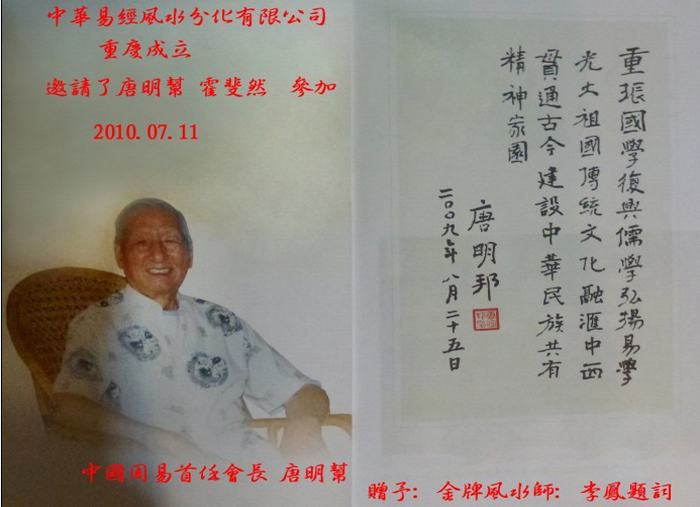 中華易經風水分化有限公司
重慶成立
邀請了唐明幫 霍斐然 參加
2010.07.11
中國周易首任會長 唐明幫
重振國學復興儒學弘揚易學
光大祖國傳統文化融滙中西
貫通古今建設中華民族共有
精神家園
唐明邦
二〇〇九年八月二十五日
贈予: 金牌風水師: 李鳳題詞